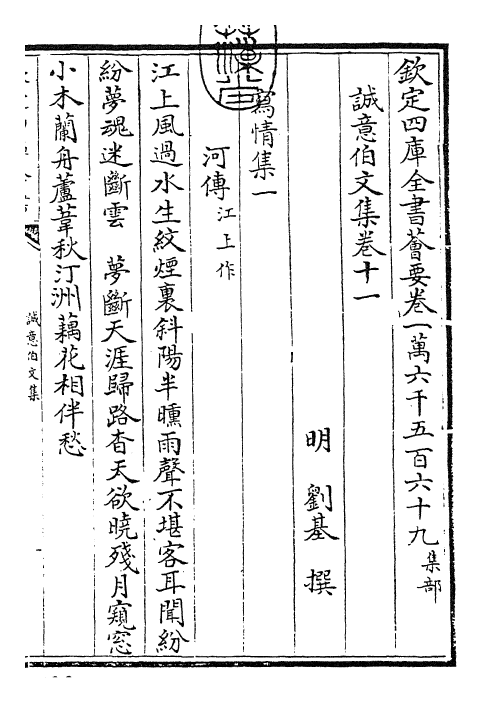 欽定四庫全書薈要卷一萬六千五百六十九集部
誠意伯文集卷十一
明劉基撰
寫情集一
河傳江上作
江上風過水生紋煙裏斜陽半曛雨聲不堪客耳聞紛
紛夢魂迷斷雲　夢斷天涯歸路杳天欲曉殘月窺窓
小木蘭舟蘆葦秋汀洲藕花相伴愁
誠意伯文集